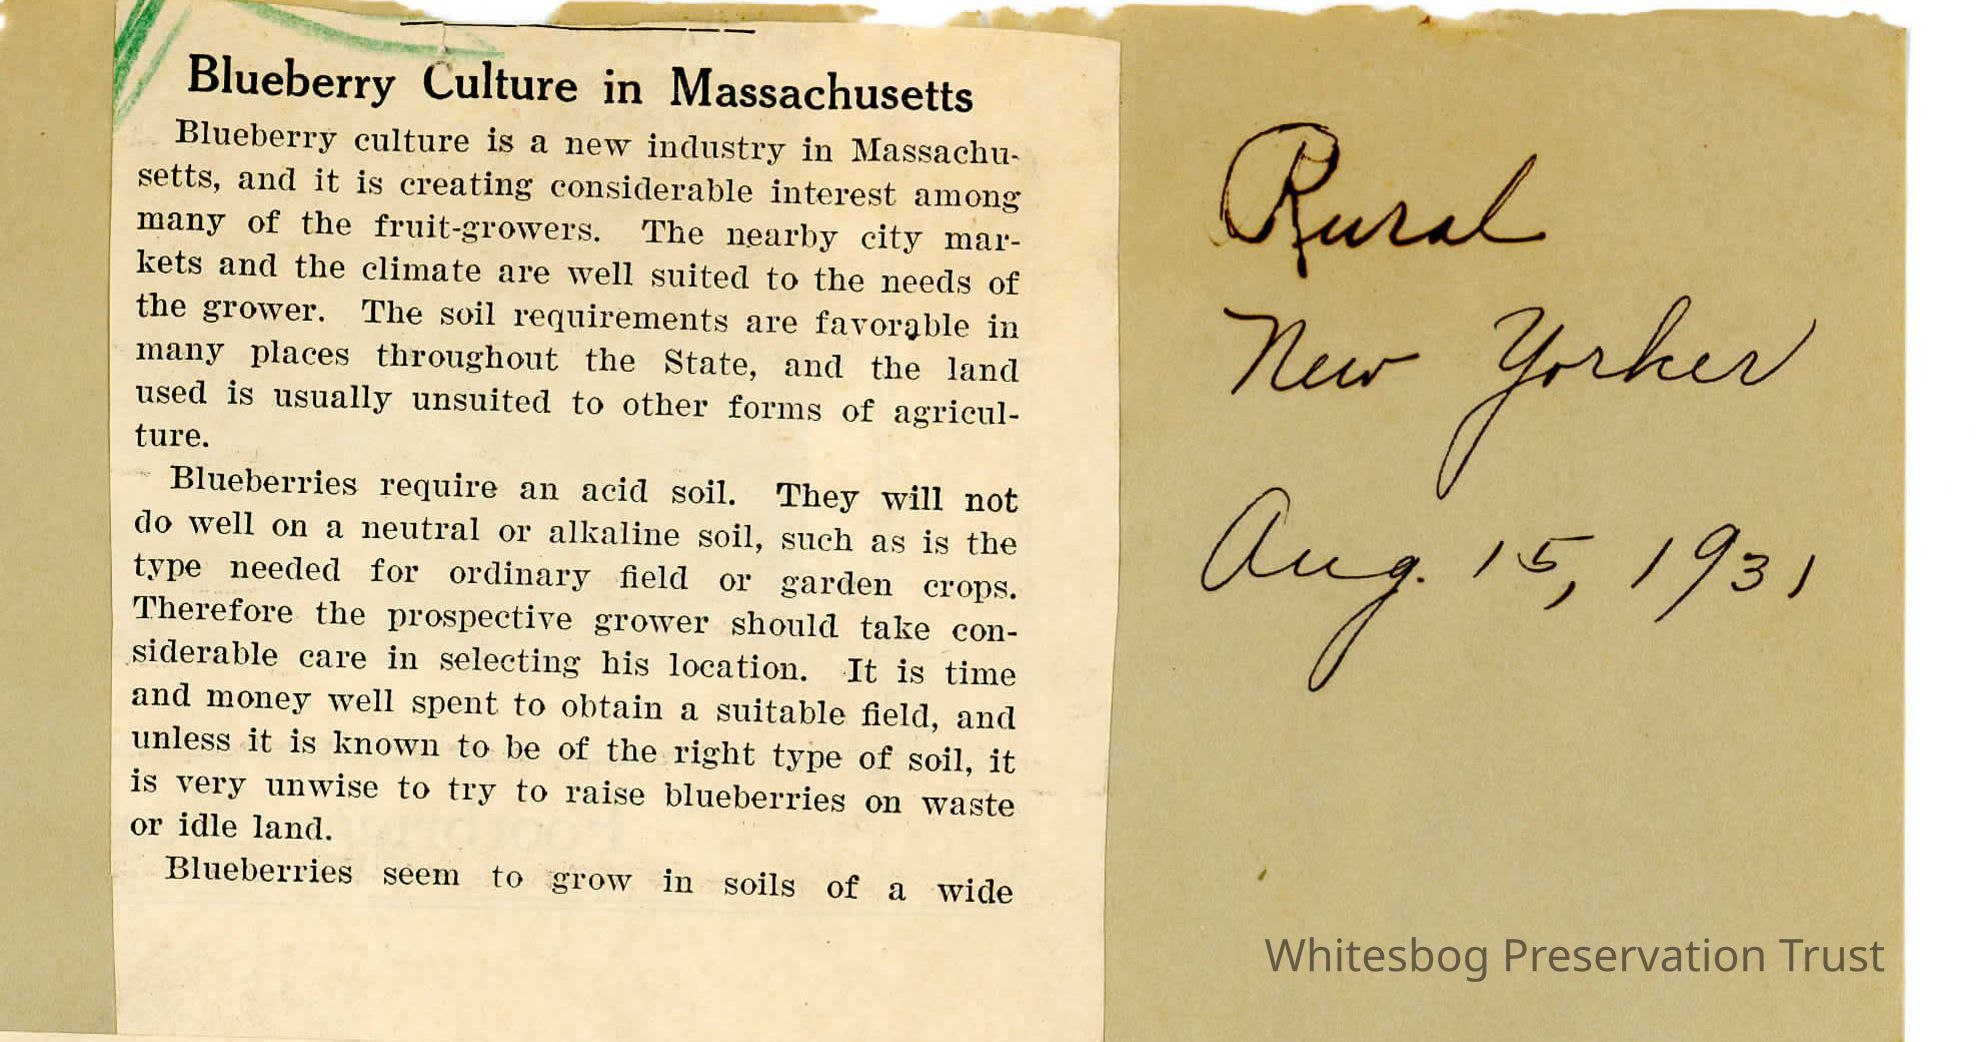 Blueberry Culture in Massachusetts
Blueberry culture is a new industry in Massachu-
setts, and it is creating considerable interest among
many of the fruit-growers. The nearby city mar-
kets and the climate are well suited to the needs of
the grower. The soil requirements are favorable in
many places throughout the State, and the land
used is usually unsuited to other forms of agricul-
ture.
Blueberries require an acid soil. They will not
do well on a neutral or alkaline soil, such as is the
type needed for ordinary field or garden crops.
Therefore the prospective grower should take con-
siderable care in selecting his location. It is time
and money well spent to obtain a suitable field, and
unless it is known to be of the right type of soil, it
is very unwise to try to raise blueberries on waste
or idle land.
Blueberries seem to grow in soils of a wide
Rural
New Yorker
Aug. 15, 1931
Whitesbog Preservation Trust